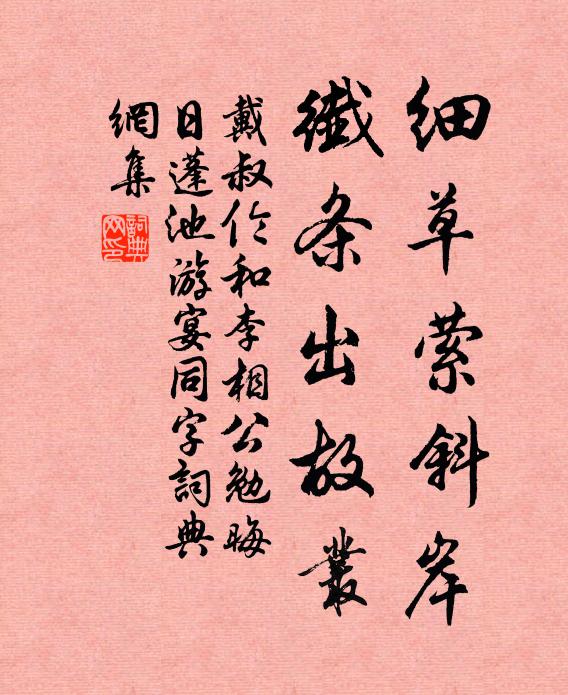 细草萦斜岸
纤条出故丛
戴叔伦和李相公勉晦
日蓬池游宴同字詞典
網集
詞典網印